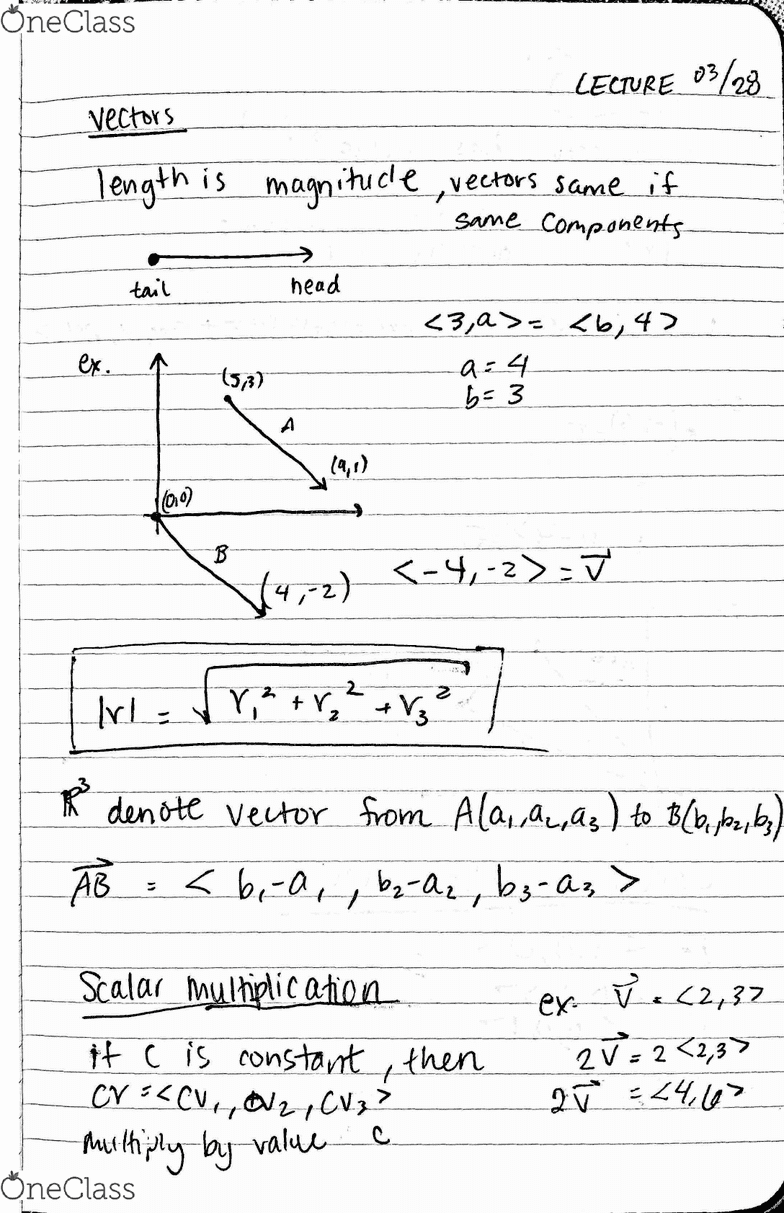 OneClass
LECTURE 03/28
vectors
length is magnitude, vectors same if
same components
tail head
<3,a> = <b,4>
ex.
a = 4
(5,3)
b = 3
A
(9,1)
(0,0)
B
(4,-2) <-4,-2> = V⃗
|v| = √(v₁² + v₂² + v₃²)
ℝ³ denote vector from A(a₁,a₂,a₃) to B(b₁,b₂,b₃)
AB⃗ = < b₁-a₁, b₂-a₂, b₃-a₃ >
Scalar multiplication ex. V⃗ = <2,3>
if c is constant, then 2V⃗ = 2<2,3>
cv = <cv₁, cv₂, cv₃> 2V⃗ = <4,6>
multiply by value c
OneClass